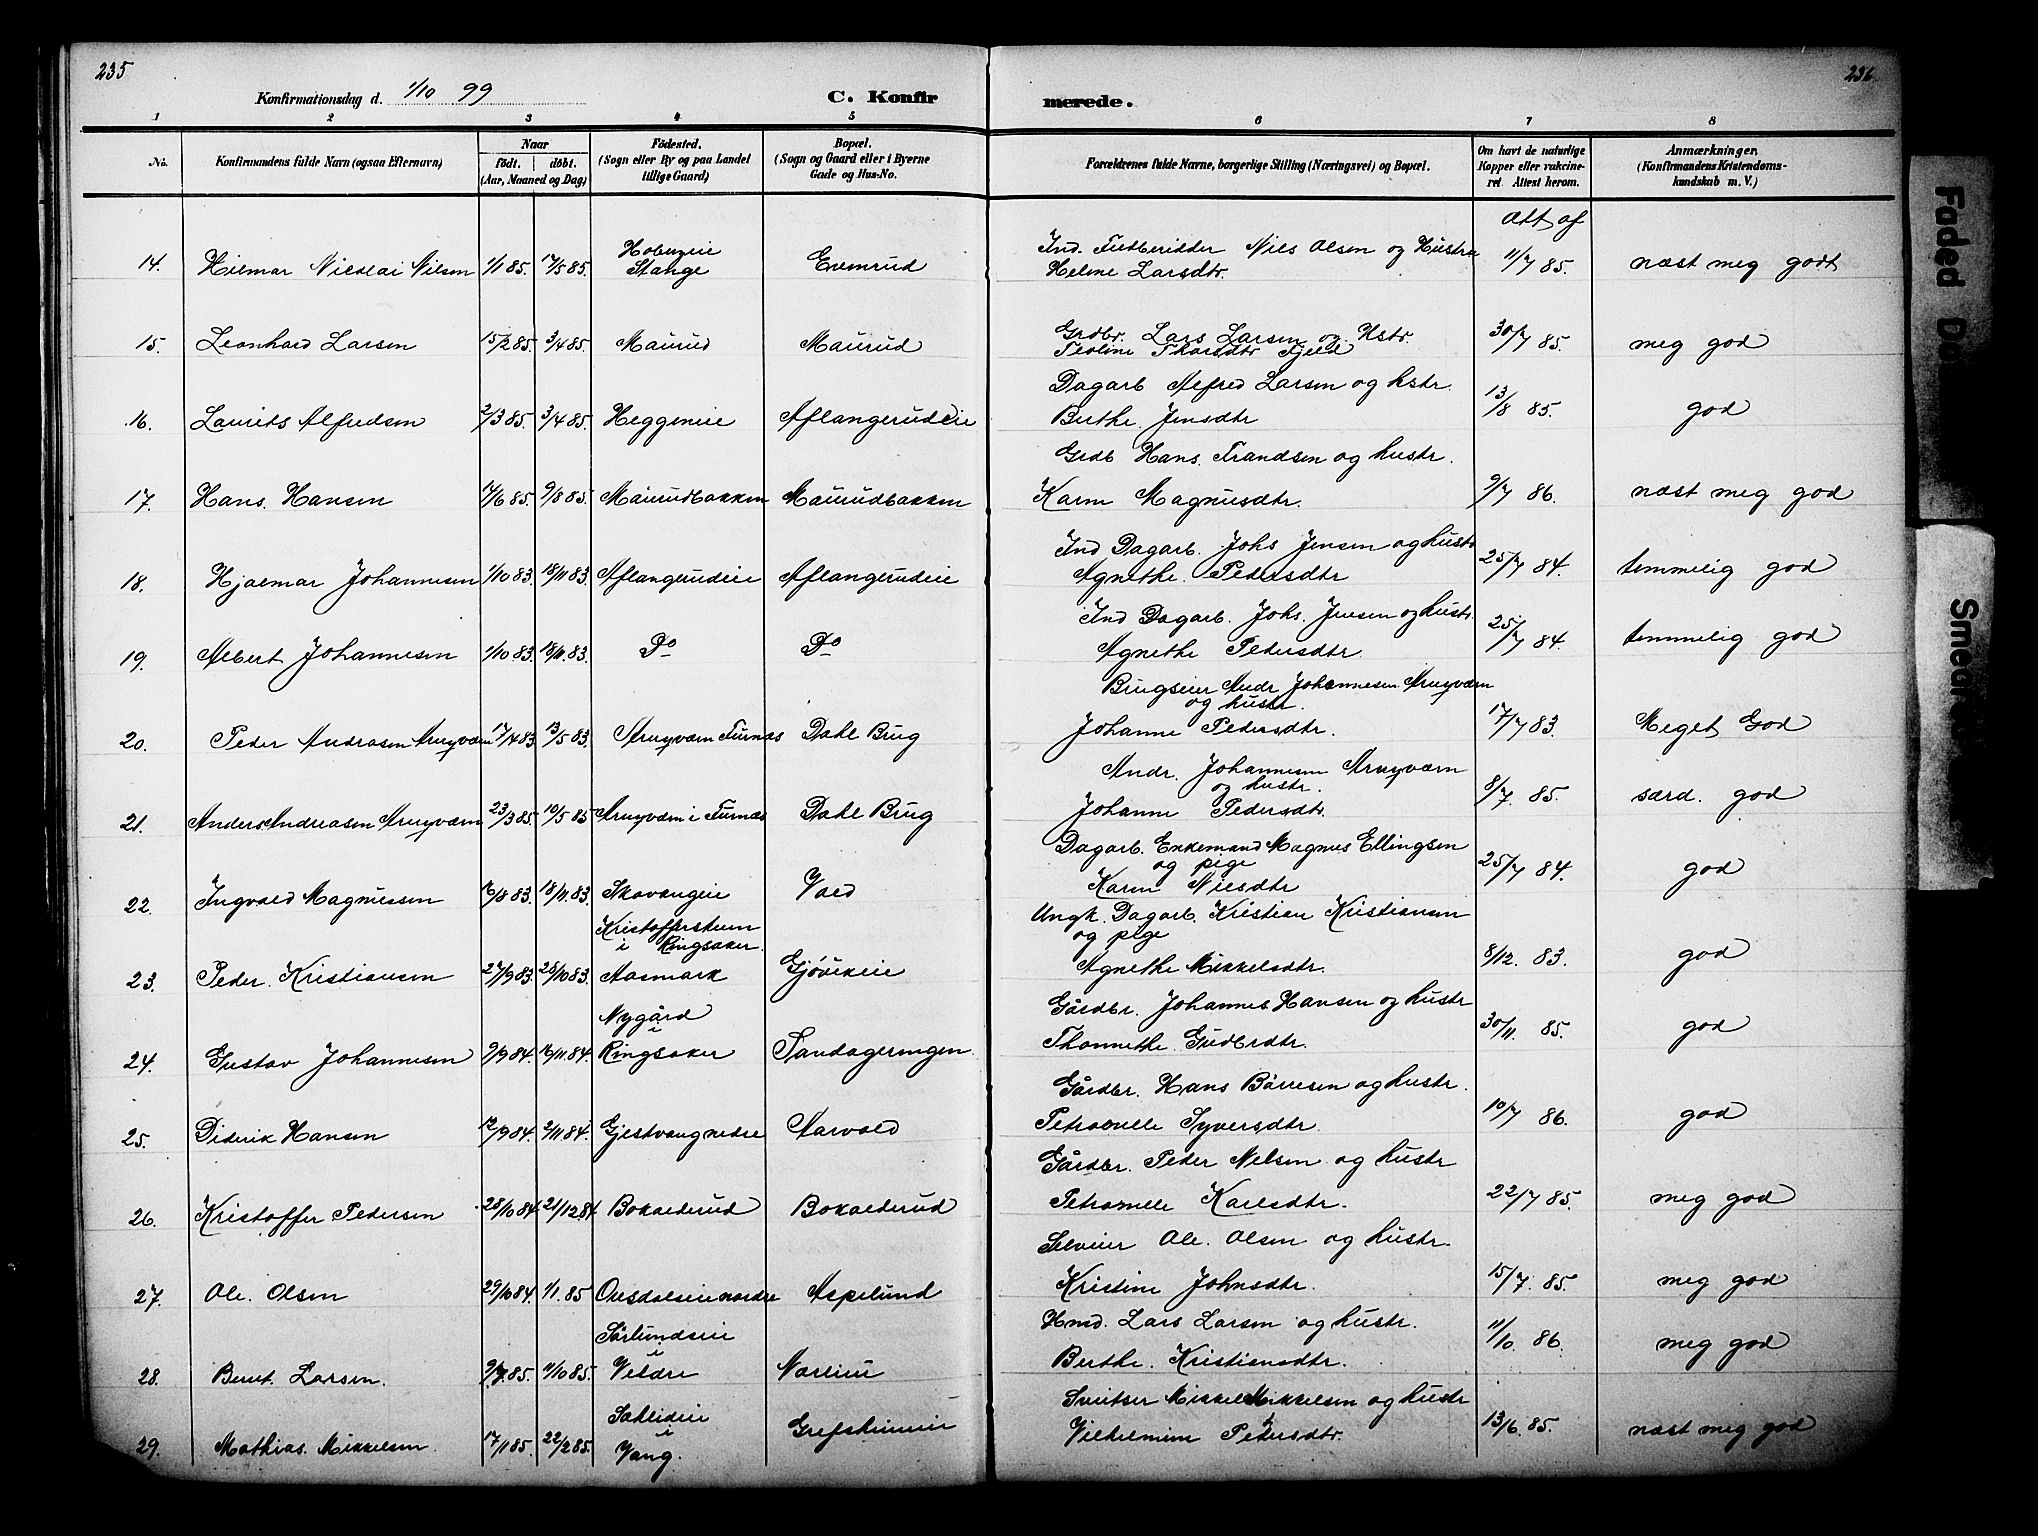 235
236
Konfirmationsdag d. 1/10 99
C. Konfirmerede.
1 2 3 4 5 6 7 8
No.
Konfirmandens fulde Navn (ogsaa Efternavn)
Naar
født. døbt.
(Aar, Maaned og Dag)
Fødested.
(Sogn eller By og paa Landet
tillige Gaard)
Bopæl.
(Sogn og Gaard eller i Byerne
Gade og Hus-No.
Forældrenes fulde Navne, borgerlige Stilling (Næringsvei) og Bopæl.
Om havt de naturlige
Kopper eller vakcine-
ret Attest herom.
Anmærkninger,
(Konfirmandens Kristendoms-
kundskab m. V.)
Att af
14. Hilmar Nicolai Nilsen 1/1 85. 17/5 85. Stange Evenrud Nils Olsen og Hustru Helene Larsdtr. 11/7 85. næst meg godt
15. Leonhard Larsen 15/2 85. 3/4 85. Maurud Maurud Grdbr. Lars Larsen og Hstr. 30/7 85. meg god
16. Laurits Alfredsen 2/3 85. 3/4 85. Heggeneie Aflangerudeie Dagarb Alfred Larsen og hstr. Berthe Jensdtr 13/8 85. god
17. Hans Hansen 17/6 85. 9/8 85. Maurudbakken Maurudbakken Grdb Hans Frandsen og hustr. Karen Magnusdtr. 9/7 86. næst meg god
18. Hjalmar Johannesen 1/10 83. 18/11 83. Aflangerudeie Aflangerudeie Ind Dagarb. Johs Jensen og hustr Agnethe Pedersdtr 25/7 84. temmelig god
19. Albert Johannesen 1/10 83. 18/11 83. Do Do Ind Dagarb. Johs. Jensen og hustr. Agnethe Pedersdtr. 25/7 84. temmelig god
20. Peder Andreasen Arnyvæn 17/4 83. 13/5 83. Arnyvæn Furnæs Dahl Brug Brugseier Andr Johannesen Arnyvæn og hustr. Johanne Pedersdtr. 17/7 83. Meget God
21. Anders Andreasen Arnyvæn 23/3 85. 10/5 85 Arnyvæn i Furnæs Dahl Brug Andr. Johannesen Arnyvæn og hustr. Johanne Pedersdtr. 8/7. 85. særd. god
22. Ingvald Magnussen 16/8 83. 18/11 83. Skavangeie Vold Dagarb. Enkemand Magnus Ellingsen og pige Karen Nilsdtr 25/7 84. god
23. Peder Kristiansen 27/9 83. 28/10 83. i Ringsaker. Aasmark Gjøvikeie Ungk. Dagarb. Kristian Kristiansen og pige Agnethe Mikkelsdtr. 8/12. 83. god
24. Gustav Johannesen 9/9 84. 16/11 84. Nygård i Ringsaker Sandageringen Gårdbr. Johannes Hansen og hustr Thonnethe Gudbrdtr. 30/11. 85. god
25. Diderik Hansen 12/9 84. 2/11 84. Gjestvang nedre Aarvold Gårdbr. Hans Børresen og hustr. Petronelle Syversdtr. 10/7 86. god
26. Kristoffer Pedersen 28/10 84. 21/12 84. Bokalerud Bokalerud Gårdbr. Peder Nelsen og hustr Petronelle Karlsdtr. 22/7 85. meg god
27. Ole Olsen 29/10 84. 1/1. 85 Ousdalseie nordre Aspelund Selveier Ole Olsen og hustr. Kristine Johnsdtr. 15/7. 85. meg god
28. Bernt Larsen. 9/7 85. 11/10 85. Sørlundseie i Veldre Narlien Hmd. Lars Larsen og hustr. Berthe Kristiansdtr. 11/10. 86. meg god
29. Mathias Mikkelsen. 17/1 85. 22/2 85. i Vang. Grefsheimeie Sveitser Mikkel Mikkelsen og hustr Vilhelmine Pedersdtr. 13/6. 85. næst meg god
Faded